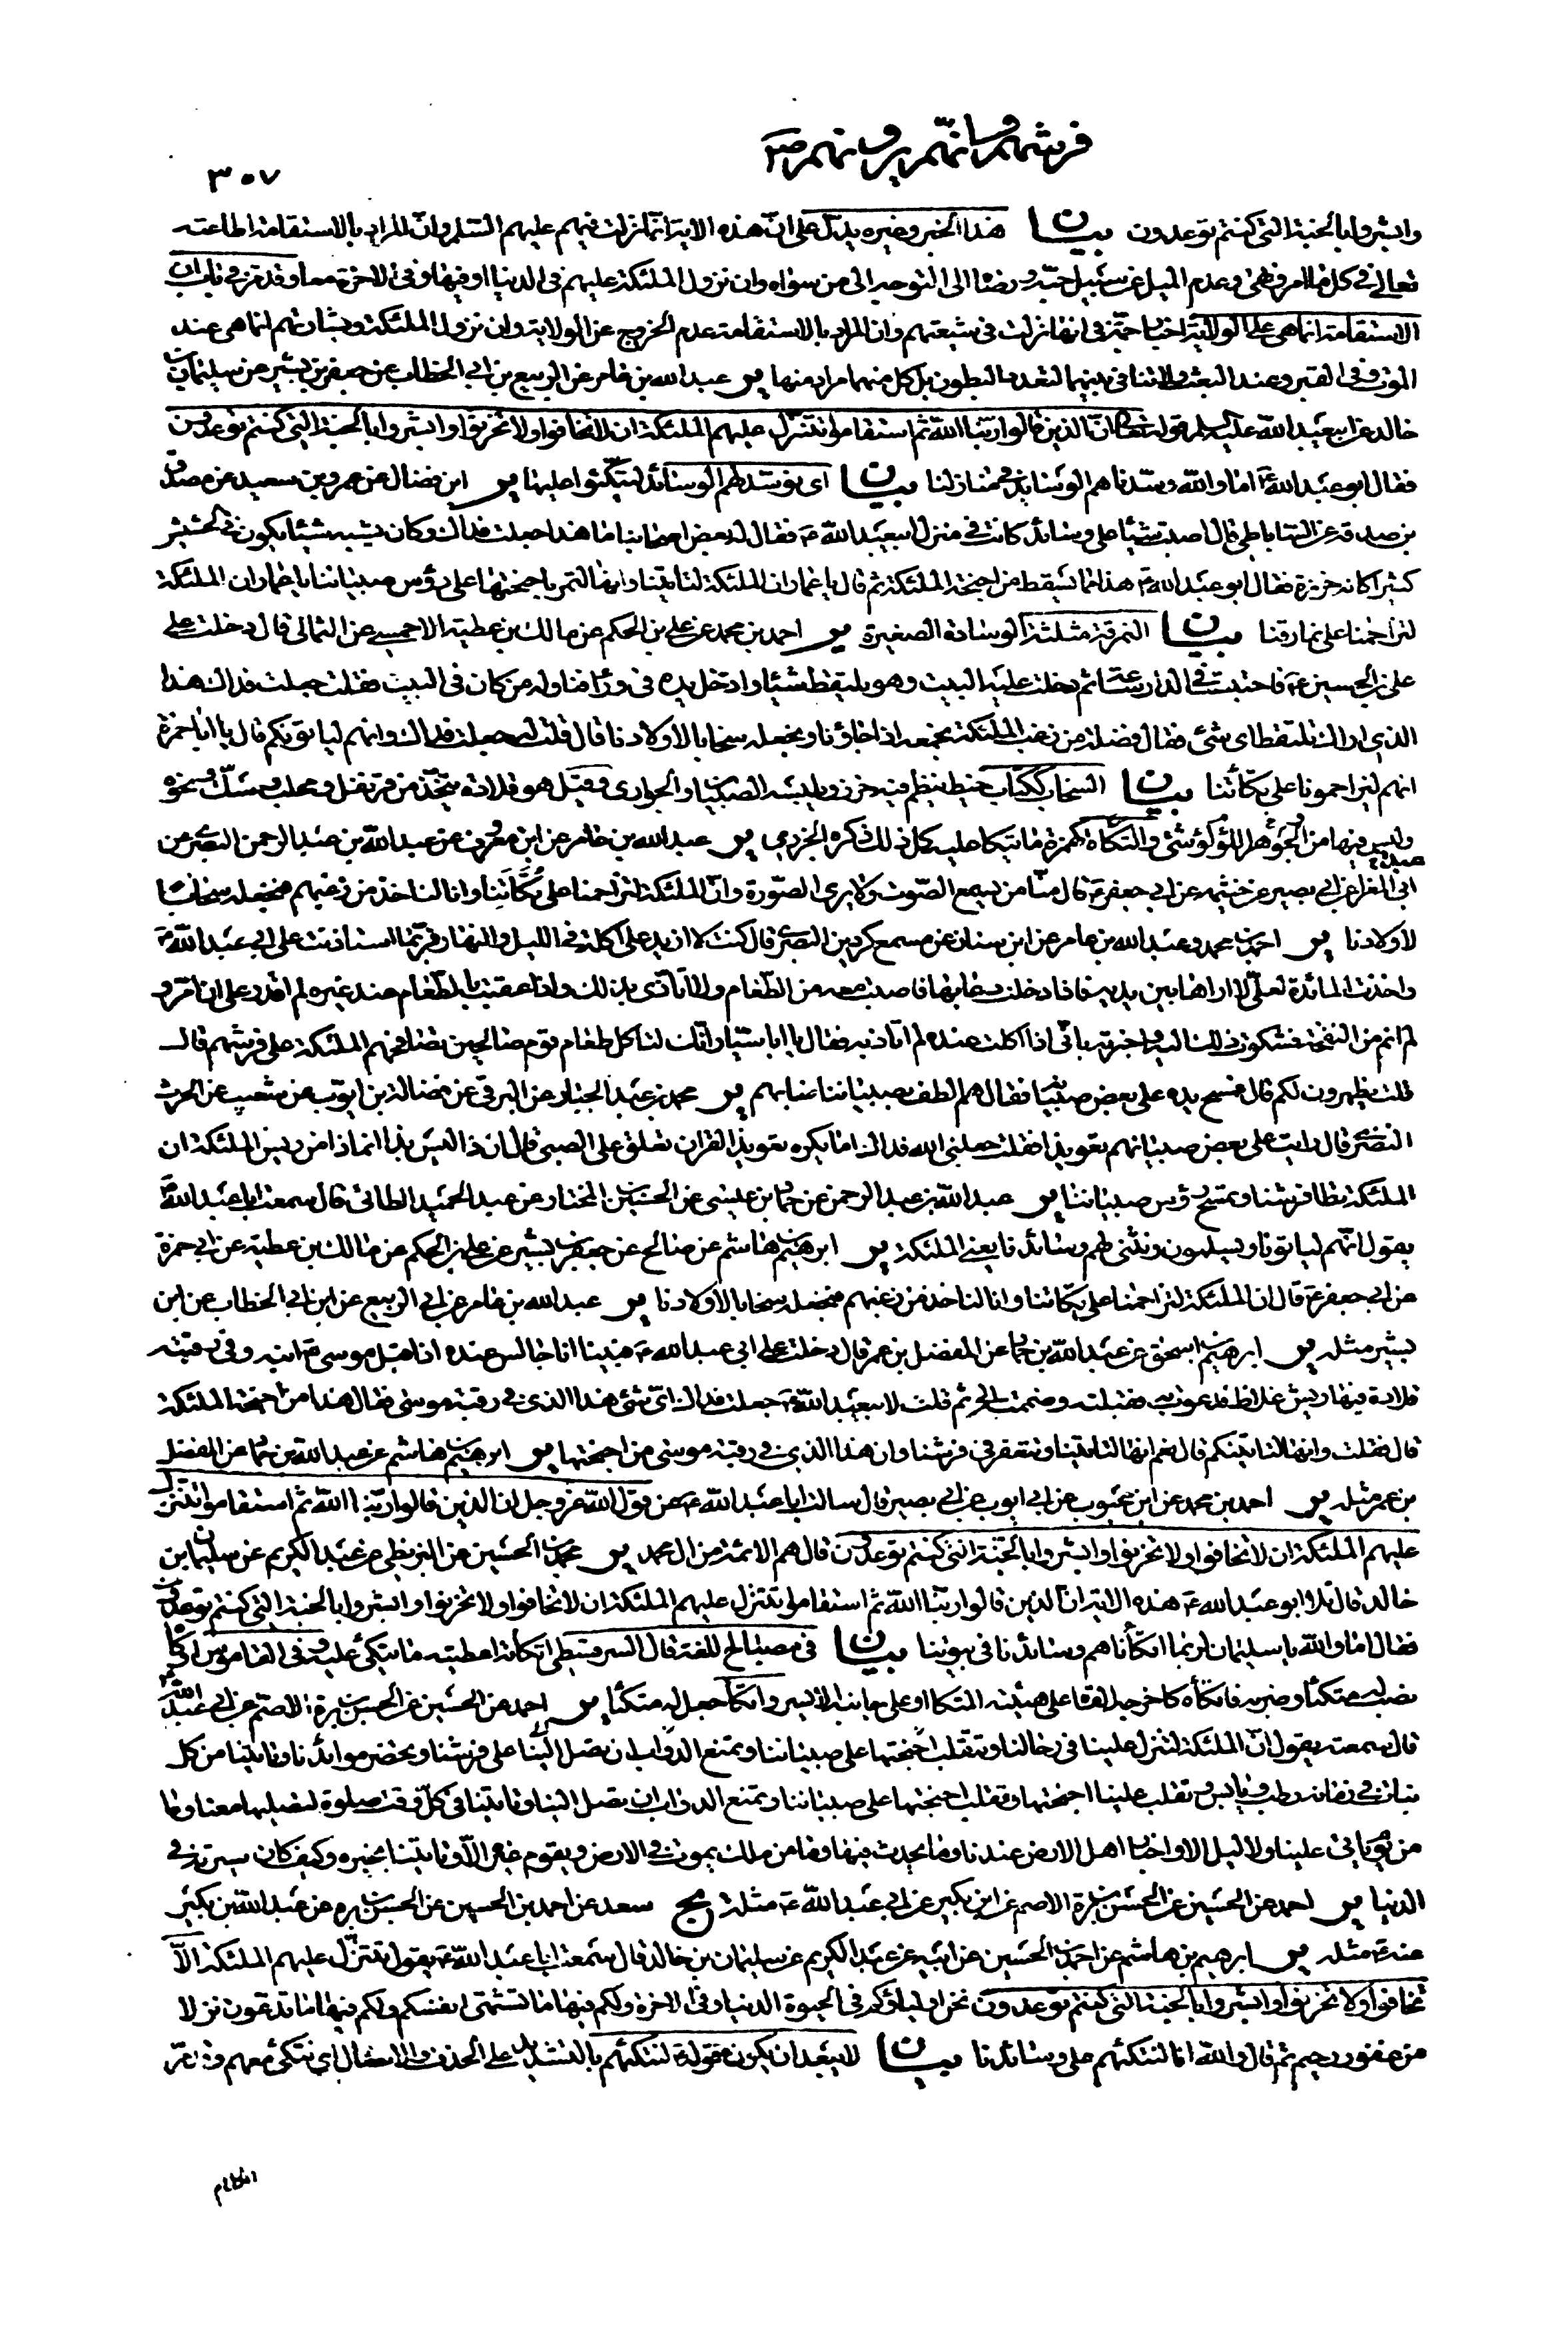 فرشهم وانهم يرونهم ص
٣٠٧
وابشروا بالجنة التي كنتم توعدون بيان هذا الخبر وغيره يدل على ان هذه الاية انما نزلت فيهم عليهم السلم وان المراد بالاستقامة اطاعته
تعالى في كل ما امر ونهى وعدم الميل عن سبيل احبته ورضاه الى التوجه الى من سواه وان نزول الملئكة عليهم في الدنيا او فيها وفي الاخرة معا وقد مر في باب ان
الاستقامة انما هي على الولاية اخبار جمة في انها نزلت في شيعتهم وان المراد بالاستقامة عدم الخروج عن الولاية وان نزول الملئكة وبشارتهم انما هي عند
الموت وفي القبر وعند البعث ولا تنافي بينهما لتعدد البطون بل كل منهما مراد منها ير عبد الله بن عامر عن الربيع بن ابي الخطاب عن جعفر بن بشير عن سليمان بن
خالد عن ابي عبد الله عليه السلم قوله تعالى ان الذين قالوا ربنا الله ثم استقاموا تتنزل عليهم الملئكة ان لا تخافوا ولا تحزنوا وابشروا بالجنة التي كنتم توعدون
فقال ابو عبد الله ع اما والله وسدناهم الوسايد في منازلنا بيان اي نوسد لهم الوسائد ليتكئوا عليها ير ابن فضال عن عمرو بن سعيد عن مصدق
بن صدقة عن الساباطي قال اصبت شيئا على وسائد كانت في منزل ابي عبد الله ع فقال له بعض اصحابنا ما هذا جعلت فداك وكان يشبه شيئا يكون في الحشيش
كثيرا كانه خرزة فقال ابو عبد الله ع هذا مما يسقط من اجنحة الملئكة ثم قال يا عمار ان الملئكة لتاتينا وانها لتمر باجنحتها على رؤس صبياننا يا عمار ان الملئكة
لتزاحمنا على نمارقنا بيان النمرقة مثلثة الوسادة الصغيرة ير احمد بن محمد عن علي بن الحكم عن مالك بن عطية الاحمسي عن الثمالي قال دخلت على
علي بن الحسين ع فاحتبست في الدار ساعة ثم دخلت عليه البيت وهو يلتقط شيئا وادخل يده في وراء فناوله من كان في البيت فقلت جعلت فداك هذا
الذي اراك تلتقط اي شئ فقال فضلة من زغب الملئكة نجمعه اذا جاؤنا ونجعله سخابا لاولادنا قال قلت له جعلت فداك وانهم لياتونكم قال يا ابا حمزة
انهم ليزاحمونا على تكأتنا بيان السخاب ككتاب خيط ينظم فيه خرز ويلبسه الصبيان والجواري وقيل هو قلادة يتخذ من قرنفل ومحلب ومسك ونحوه
وليس فيها من الجوهر اللؤلؤ شئ والتكأة كهمزة ما يتكأ عليه كل ذلك ذكره الجزري ير عبد الله بن عامر عن ابن معروف عن عبد الله بن عبد الرحمن البصري عن
ابي المغرا عن ابي بصير عن خيثمة عن ابي جعفر ع قال منا من يسمع الصوت ولا يرى الصورة وان الملئكة لتزاحمنا على تكأتنا وانا لناخذ من زغبهم فنجعله سخابا
لاولادنا ير احمد بن محمد وعبد الله بن عامر عن ابن سنان عن مسمع كردين البصري قال كنت لا ازيد على اكلة في الليل والنهار فربما استاذنت على ابي عبد الله ع
واخذت المائدة لعلي لا اراها بين يديه فاذا دخلت دعا بها فاصبت معه من الطعام ولا اتاذى بذلك واذا عقبت بالطعام عند غيره لم اقدر على ان اقر و
لم انم من النفخة فشكوت ذلك اليه واخبرته باني اذا اكلت عنده لم اتاذ به فقال يا ابا سيار انك لتاكل طعام قوم صالحين تصافحهم الملئكة على فرشهم قال
قلت يظهرون لكم قال فمسح يده على بعض صبيانه فقال هم الطف بصبياننا منا بهم ير محمد بن عبد الجبار عن البرقي عن فضالة بن ايوب عن شعيب عن الحرث
النضري قال رايت على بعض صبيانهم تعويذا فقلت جعلني الله فداك اما يكره تعويذ القران تعلق على الصبي قال ان ذا ليس بذا انما ذا من ريش الملئكة ان
الملئكة تطا فرشنا وتمسح رؤس صبياننا ير عبد الله بن عبد الرحمن عن حماد بن عيسى عن الحسين بن المختار عن عبد الحميد الطائي قال سمعت ابا عبد الله ع
يقول انهم لياتونا ويسلمون ونثني لهم وسائدنا يعني الملئكة ير ابرهيم بن هاشم عن صالح عن جعفر بن بشير عن علي بن الحكم عن مالك بن عطية عن ابي حمزة
عن ابي جعفر ع قال ان الملئكة لتزاحمنا على تكأتنا وانا لناخذ من زغبهم فنجعله سخابا لاولادنا ير عبد الله بن عامر عن ابي الربيع عن ابن ابي الخطاب عن ابن
بشير مثله ير ابرهيم بن اسحق عن عبد الله بن حماد عن المفضل بن عمر قال دخلت على ابي عبد الله ع فبينا انا جالس عنده اذ اقبل موسى ع ابنه وفي رقبته
قلادة فيها ريش غلاظ فدعوت به فقبلته وضممته الي ثم قلت لابي عبد الله ع جعلت فداك اي شئ هذا الذي في رقبة موسى فقال هذا من اجنحة الملئكة
قال فقلت وانها لتاتيكم قال نعم انها لتاتينا وتتعفر في فرشنا وان هذا الذي في رقبة موسى من اجنحتها ير ابرهيم بن هاشم عن عبد الله بن حماد عن المفضل
بن عمر مثله ير احمد بن محمد عن ابن محبوب عن ابي ايوب عن ابي بصير قال سالت ابا عبد الله ع عن قول الله عز وجل ان الذين قالوا ربنا الله ثم استقاموا تتنزل
عليهم الملئكة ان لا تخافوا ولا تحزنوا وابشروا بالجنة التي كنتم توعدون قال هم الائمة من ال محمد ير محمد بن الحسين عن البزنطي عن عبد الكريم عن سليمان بن
خالد قال تلا ابو عبد الله ع هذه الاية ان الذين قالوا ربنا الله ثم استقاموا تتنزل عليهم الملئكة ان لا تخافوا ولا تحزنوا وابشروا بالجنة التي كنتم توعدون
فقال اما والله يا سليمان لربما اتكأناهم وسائدنا في بيوتنا بيان في مصباح اللغة قال السرقسطي اتكأته اعطيته ما يتكئ عليه وفي القاموس اوكأه
نصب له متكئا وضربه فاتكأه كاخرجه القاه على هيئة المتكا او على جانبه الايسر واتكأ جعل له متكئا ير احمد عن الحسين عن الحسن بن برة الاصم عن ابي عبد الله ع
قال سمعته يقول ان الملئكة لتنزل علينا في رحالنا وتتقلب اجنحتها على صبياننا وتمنع الدواب ان تصل الينا على فرشنا وتحضر موائدنا وتاتينا من كل
نبات في زمانه رطب ويابس وتقلب علينا اجنحتها وتقلب اجنحتها على صبياننا وتمنع الدواب ان تصل الينا وتاتينا في كل وقت صلوة لتصليها معنا وما
من يوم ياتي علينا ولا ليل الا واخبار اهل الارض عندنا وما يحدث فيها وما من ملك يموت في الارض ويقوم غيره الا وتاتينا بخبره وكيف كان سيرته في
الدنيا ير احمد عن الحسين عن الحسن بن برة الاصم عن ابن بكير عن ابي عبد الله ع مثله يج سعد عن احمد بن الحسين عن الحسن بن برة عن عبد الله بن بكير
عنه ع مثله ير ابرهيم بن هاشم عن احمد بن الحسين عن ابيه عن عبد الكريم عن سليمان بن خالد قال سمعت ابا عبد الله ع يقول تتنزل عليهم الملئكة الا
تخافوا ولا تحزنوا وابشروا بالجنة التي كنتم توعدون نحن اولياؤكم في الحيوة الدنيا وفي الاخرة ولكم فيها ما تشتهي انفسكم ولكم فيها ما تدعون نزلا
من غفور رحيم ثم قال والله انا لنتكئهم على وسائدنا بيان لا يبعد ان يكون قوله لنتكئهم بالتشديد على الحذف والايصال اي نتكئ معهم